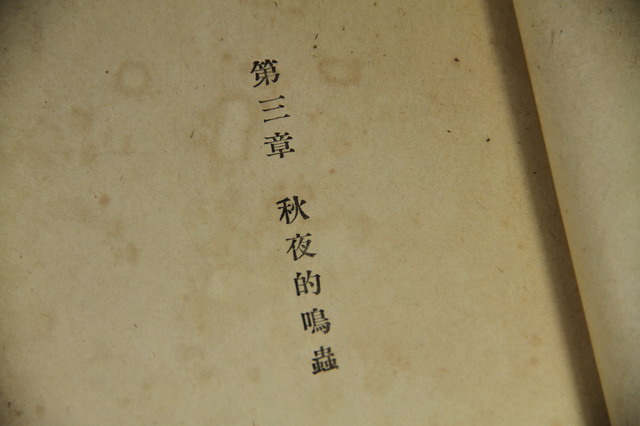 第三章 秋夜的鳴蟲